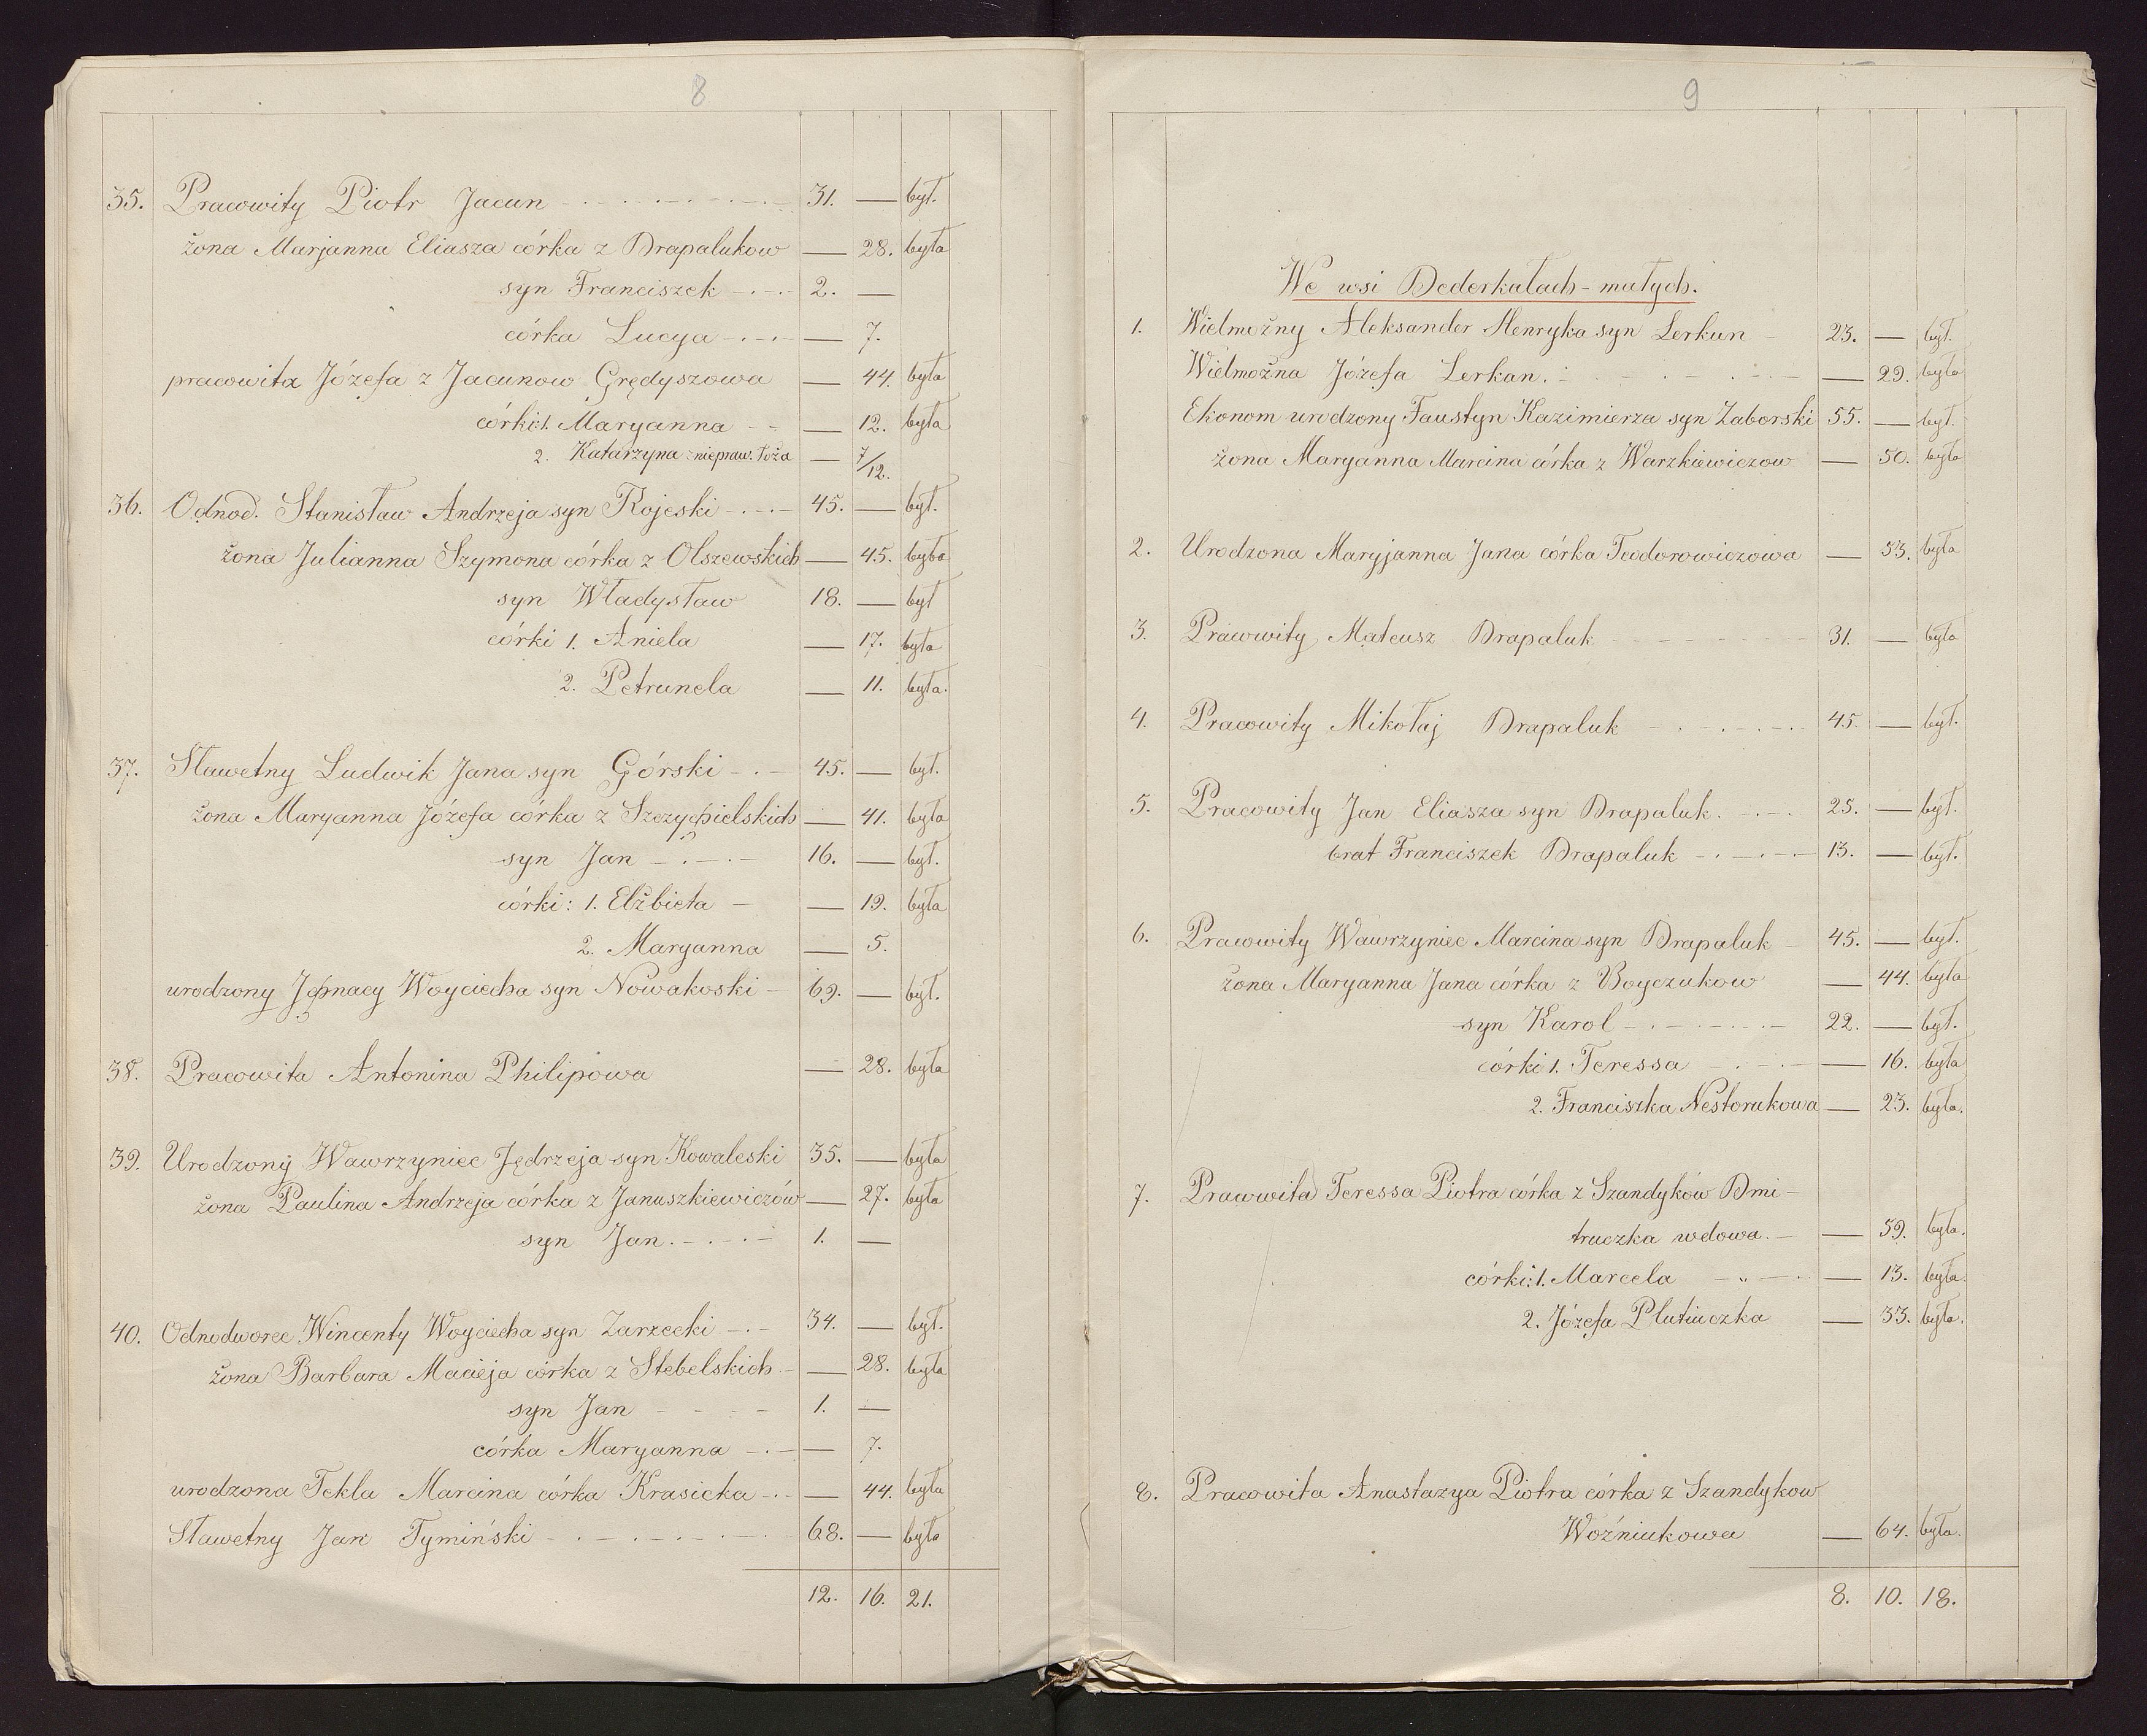 8
35. Pracowity Piotr Jacun 31. — był.
żona Marjanna Eliasza córka z Drapalukow — 28. była
syn Franciszek 2. —
córka Lucya — 7.
pracowita Józefa z Jacunow Grędyszowa — 44. była
córki: 1. Maryanna — 12. była
2. Katarzyna niepraw. łoża — 7/12.
36. Odnod. Stanisław Andrzeja syn Rojeski 45. — był.
żona Julianna Szymona córka z Olszewskich — 45. była
syn Władysław 18. — był
córki 1. Aniela — 17. była
2. Petrunela — 11. była.
37. Sławetny Ludwik Jana syn Górski 45. — był.
żona Maryanna Józefa córka z — 41. była
syn Jan 16. — był.
córki: 1. Elżbieta — 19. była
2. Maryanna — 5.
urodzony Ignacy Woyciecha syn Nowakoski 69. — był.
38. Pracowita Antonina Philipowa — 28. była
39. Urodzony Wawrzyniec Jędrzeja syn Kowaleski 35. — była
żona Paulina Andrzeja córka z Januszkiewiczów — 27. była
syn Jan 1. —
40. Odnodworec Wincenty Woyciecha syn Zarzecki 34. — był.
żona Barbara Macieja córka z Stebelskich — 28. była
syn Jan 1. —
córka Maryanna — 7.
urodzona Tekla Marcina córka Krasicka — 44. była
Sławetny Jan Tymiński 68. — była
12. 16. 21.
9
We wsi Dederkałach-małych.
1. Wielmożny Aleksander Henryka syn Lerkan 23. — był.
Wielmożna Józefa Lerkan. — 29. była
Ekonom urodzony Faustyn Kazimierza syn Zaborski 55. — był.
żona Maryanna Marcina córka z Warzkiewiczow — 50. była
2. Urodzona Maryjanna Jana córka Teodorowiczowa — 53. była
3. Pracowity Mateusz Drapaluk 31. — była
4. Pracowity Mikołaj Drapaluk 45. — był.
5. Pracowity Jan Eliasza syn Drapaluk. 25. — był.
brat Franciszek Drapaluk 13. — był.
6. Pracowity Wawrzyniec Marcina syn Drapaluk 45. — był.
żona Maryanna Jana córka z Boyczukow — 44. była
syn Karol 22. — był.
córki 1. Teressa — 16. była
2. Franciszka Nestorukowa — 23. była.
7. Pracowita Teressa Piotra córka z Szandyków Dmi-
truczka wdowa. — 59. była.
córki: 1. Marcela — 13. była.
2. Józefa Plutiuczka — 33. była.
8. Pracowita Anastazya Piotra córka z Szandykow
Woźniukowa — 64. była.
8. 10. 18.